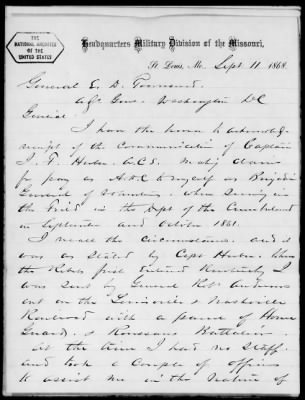 THE
NATIONAL ARCHIVES
OF THE
UNITED STATES
Headquarters Military Division of the Missouri,
St. Louis, Mo., Sept 11 1868.
General E. D. Townsend
Washington DC
General
I have the honor to acknowledge
receipt of the Communication of Captain
J. F. A.C.S. making claim
for pay as A.D.C to myself as Brigadier
General of Volunteers when serving in
the Field in the Dept of the Cumberland
in September and October 1861.
I recall the circumstances and it
was as stated by Capt When
the Rebels first entered Kentucky I
was sent by General Robt Anderson
out on the Louisville & Nashville
Railroad with a parcel of Home
Guards & Rousseaus Battalion
at the time I had no Staff
and took a couple of officers
to assist me in the nature of